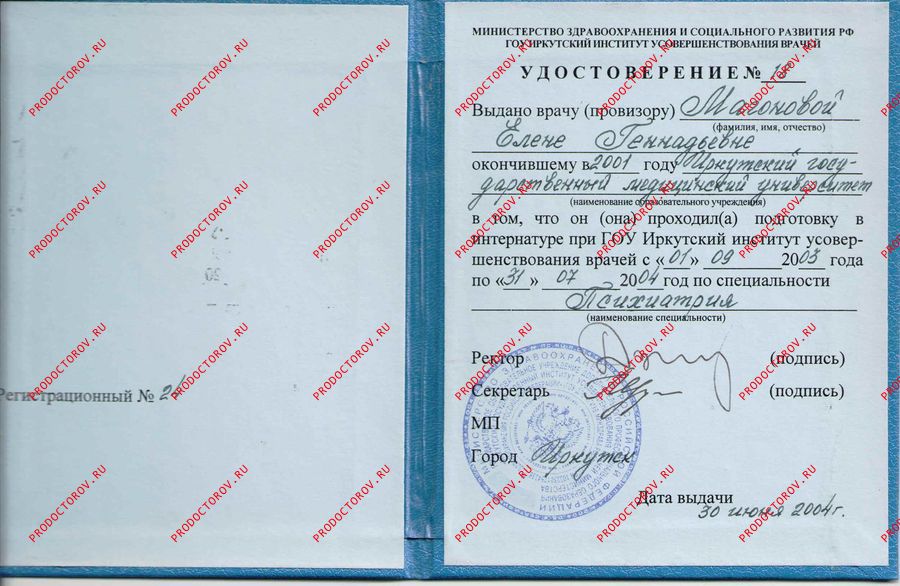 Регистрационный № 24
МИНИСТЕРСТВО ЗДРАВООХРАНЕНИЯ И СОЦИАЛЬНОГО РАЗВИТИЯ РФ
ГОУ ИРКУТСКИЙ ИНСТИТУТ УСОВЕРШЕНСТВОВАНИЯ ВРАЧЕЙ
УДОСТОВЕРЕНИЕ № 15
Выдано врачу (провизору) Магоновой
(фамилия, имя, отчество)
Елене Геннадьевне
окончившему в 2001 году Иркутский госу-
дарственный медицинский университет
(наименование образовательного учреждения)
в том, что он (она) проходил(а) подготовку в
интернатуре при ГОУ Иркутский институт усовер-
шенствования врачей с «01» 09 2003 года
по «31» 07 2004 год по специальности
Психиатрия
(наименование специальности)
Ректор (подпись)
Секретарь (подпись)
МП
Город Иркутск
Дата выдачи
30 июня 2004г.
PRODOCTOROV.RU